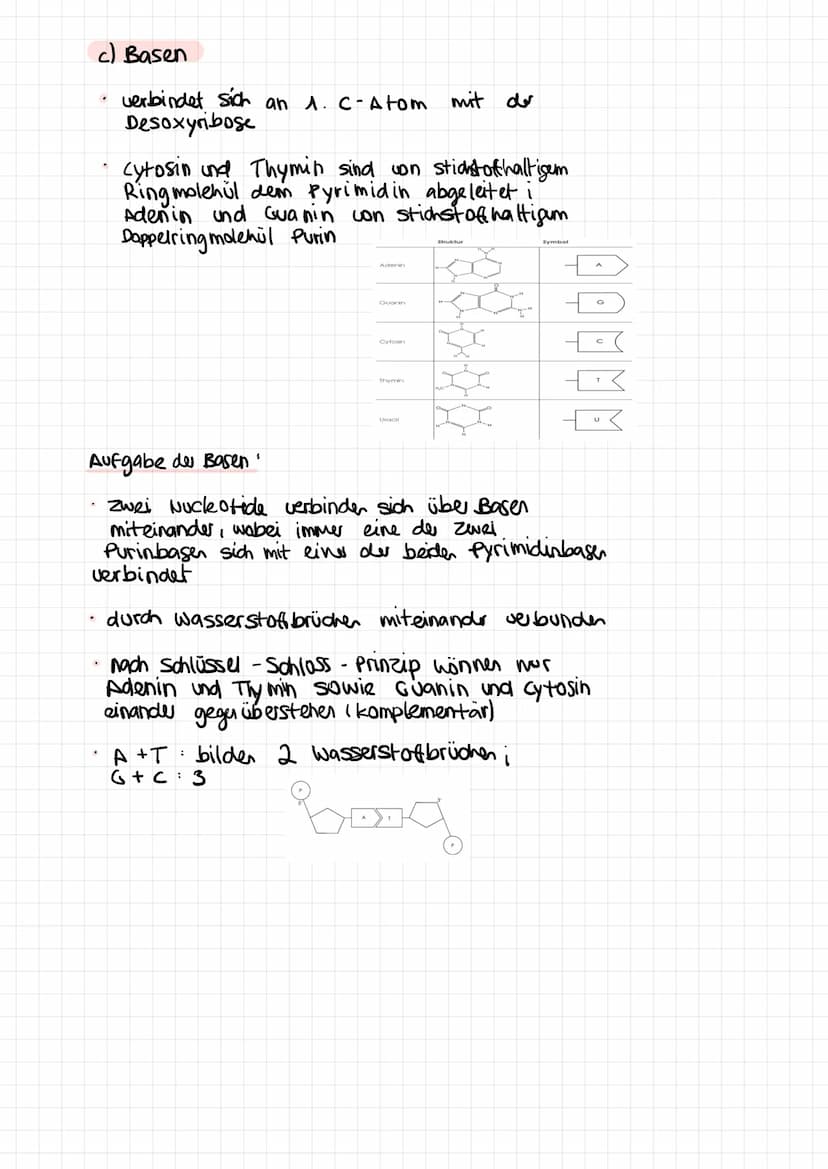 c) Basen
• verbindet sich an 1. C-Atom mit der
Desoxyribose
• Cytosin und Thymin sind von stickstoffhaltigem
Ringmolekül dem Pyrimidin abgeleitet ;
Adenin und Guanin von stickstoffhaltigem
Doppelringmolekül Purin
Struktur Symbol
Adenin A
Guanin G
Cytosin C
Thymin T
Uracil U
Aufgabe der Basen:
• zwei Nucleotide verbinden sich über Basen
miteinander, wobei immer eine der zwei
Purinbasen sich mit einer der beiden Pyrimidinbasen
verbindet
• durch Wasserstoffbrücken miteinander verbunden
• nach Schlüssel-Schloss-Prinzip können nur
Adenin und Thymin sowie Guanin und Cytosin
einander gegenüberstehen (komplementär)
• A+T: bilden 2 Wasserstoffbrücken ;
G+C: 3
P
A T
P